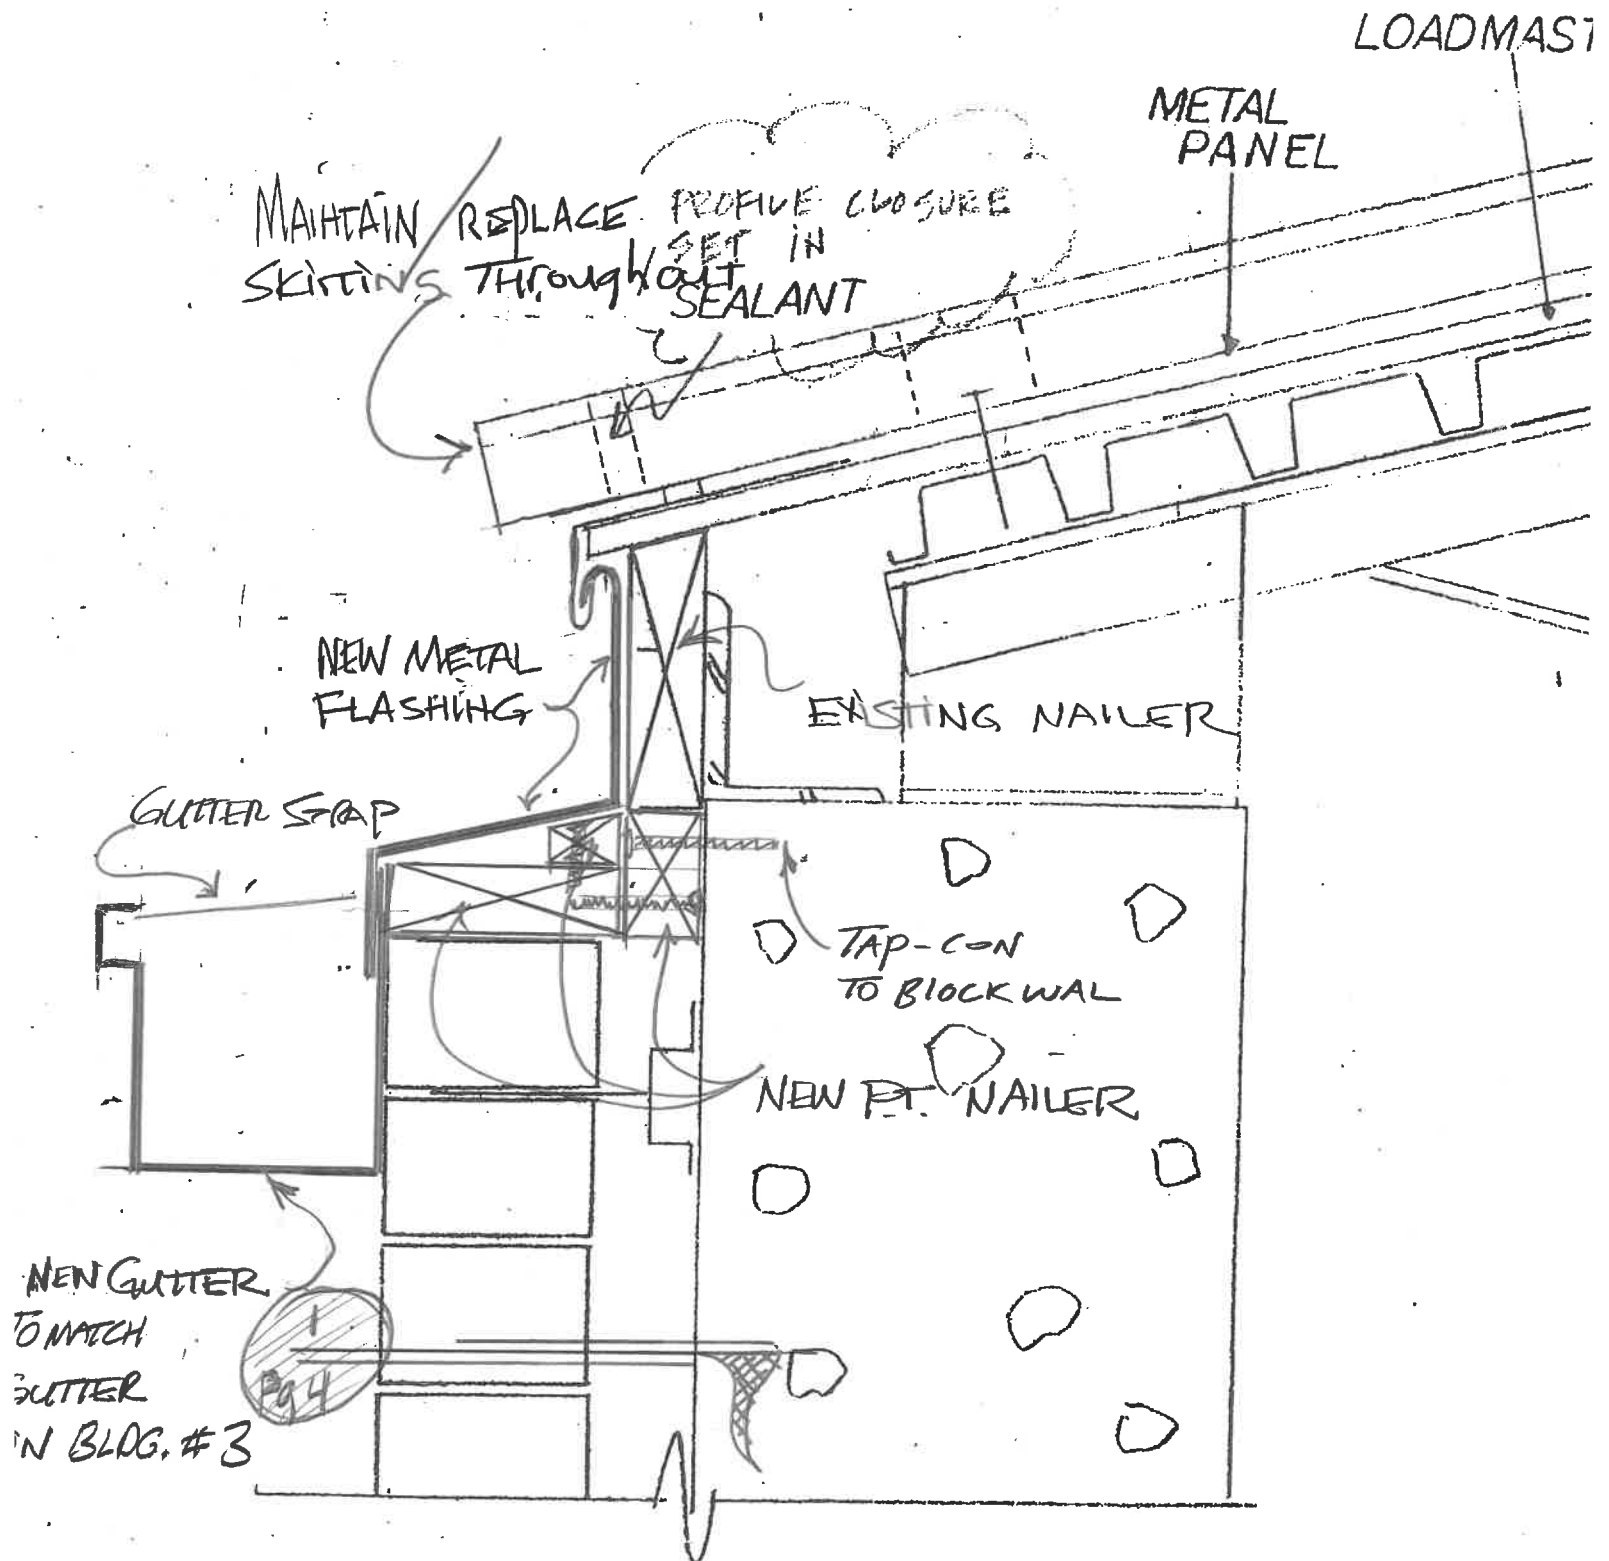 LOADMAST
METAL
PANEL
MAIHTAIN REPLACE
SKITTINS THroughout
PROFILE CLOSURE
SET IN
SEALANT
NEW METAL
FLASHING
EXISTING NAILER
GUTTER STRAP
TAP-CON
TO BLOCK WAL
NEW P.T. NAILER
NEW GUTTER
TO MATCH
GUTTER
IN BLDG. #3
1
Pg 4